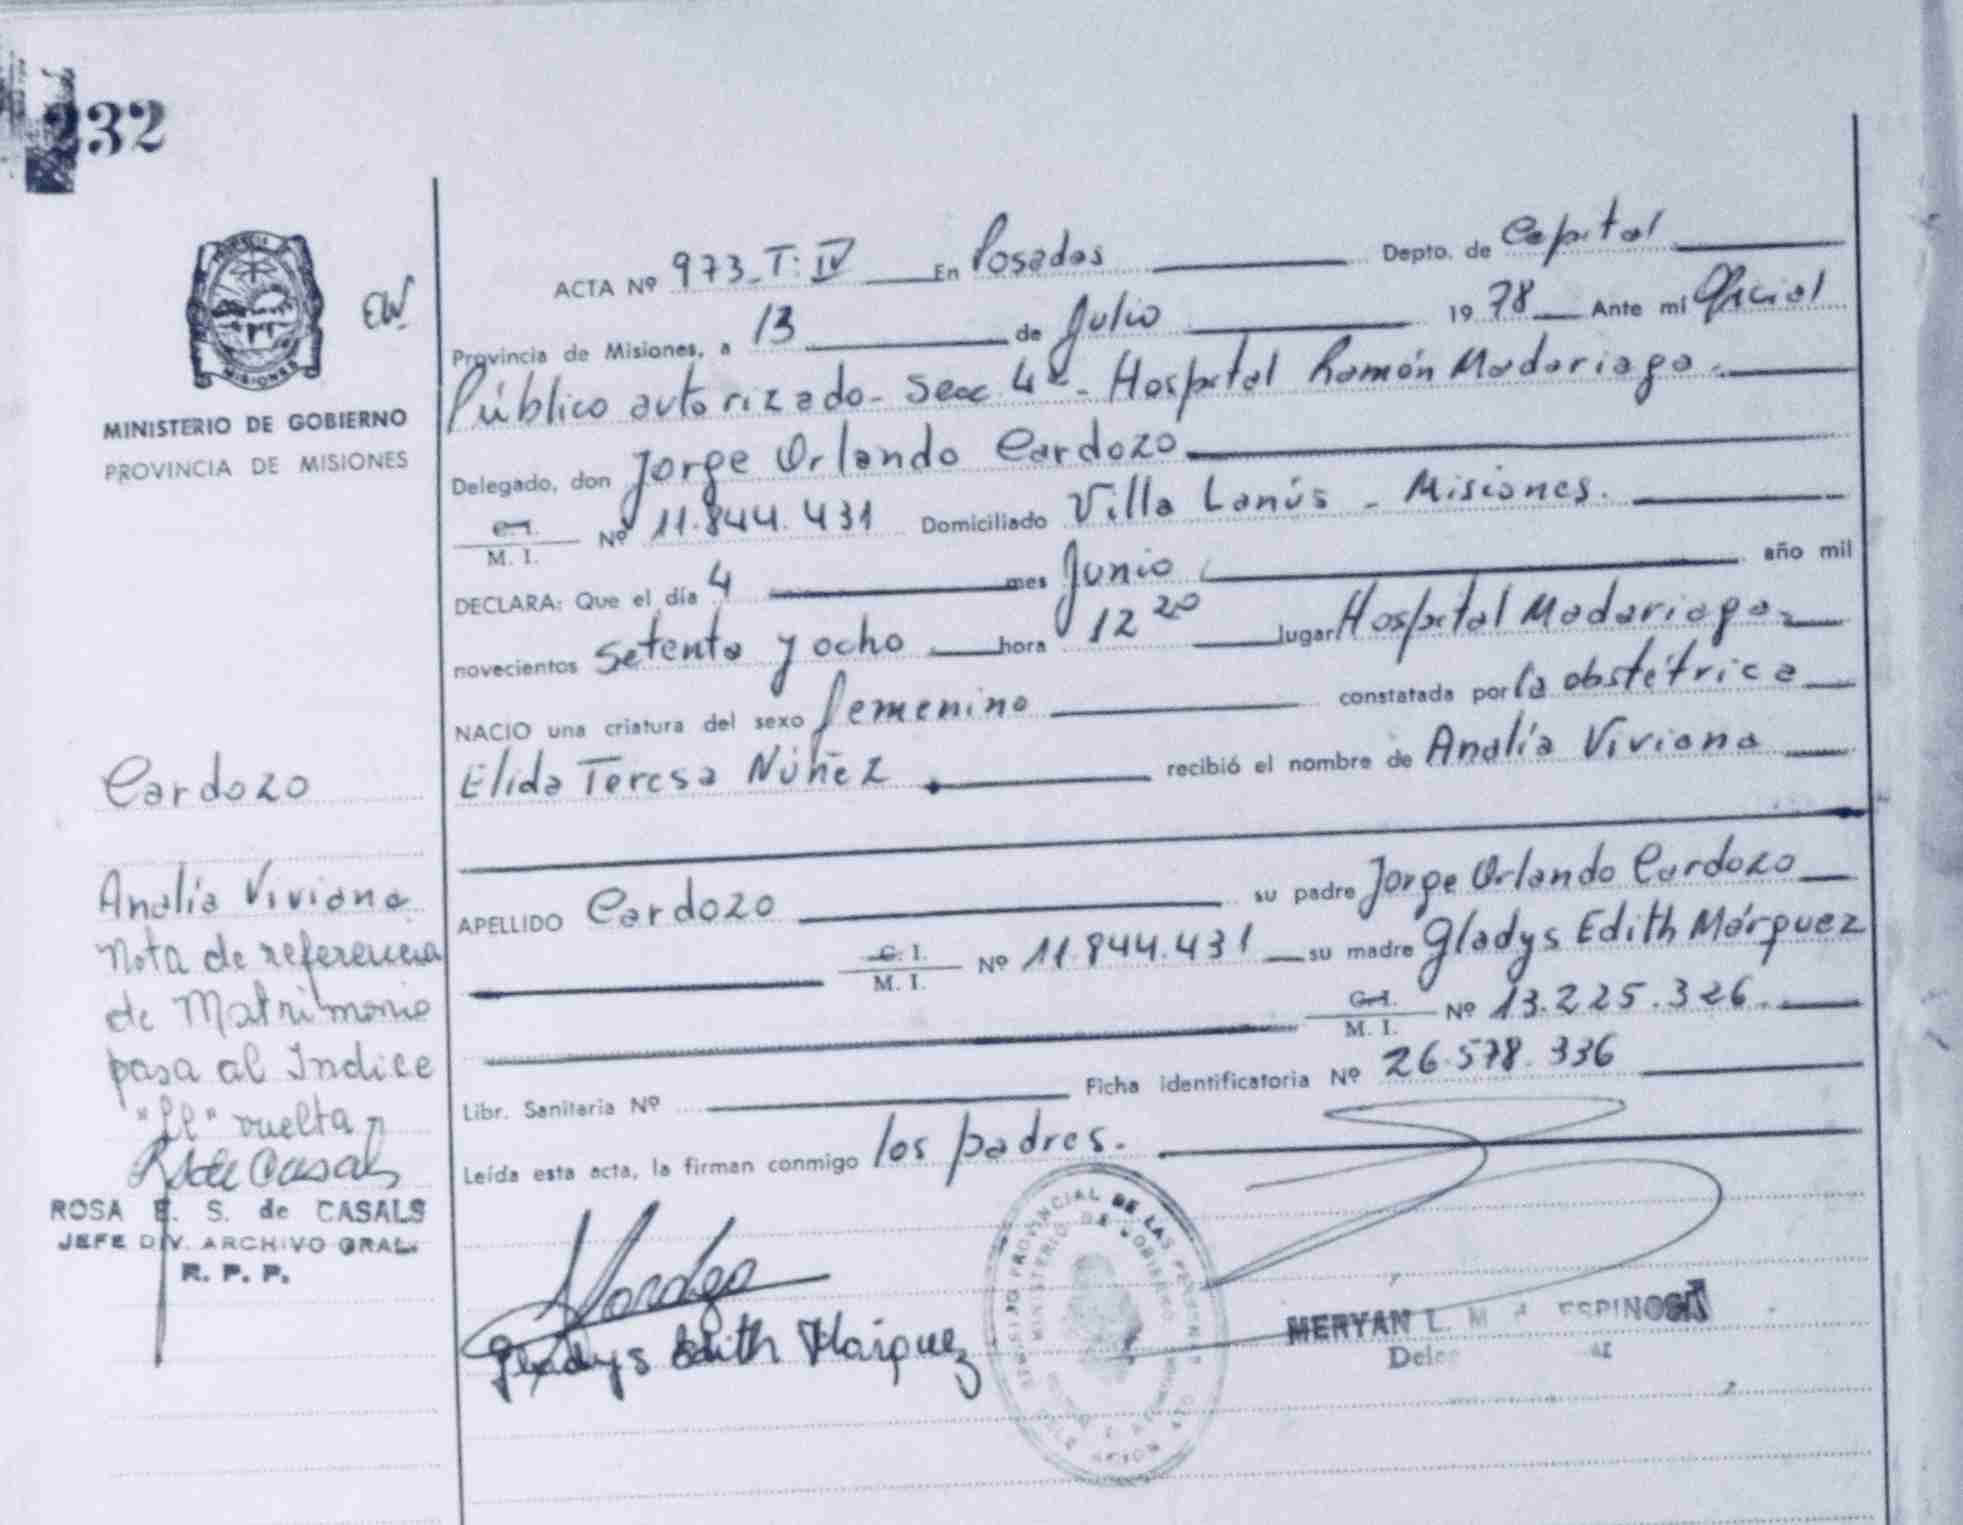 232
EW.
MINISTERIO DE GOBIERNO
PROVINCIA DE MISIONES
ACTA Nº 973_T: IV En Posadas Depto. de Capital
Provincia de Misiones, a 13 de Julio 1978 Ante mí Oficial
Público autorizado- Secc 4ª - Hospital Ramón Madariaga.
Delegado, don Jorge Orlando Cardozo
C. I.
M. I. Nº 11.844.431 Domiciliado Villa Lanús - Misiones.
DECLARA: Que el día 4 mes Junio año mil
novecientos setenta y ocho hora 12 20 lugar Hospital Madariaga
NACIO una criatura del sexo femenino constatada por la obstétrica
Elida Teresa Núñez recibió el nombre de Analía Viviana
APELLIDO Cardozo su padre Jorge Orlando Cardozo
C. I.
M. I. Nº 11.844.431 su madre Gladys Edith Márquez
C. I.
M. I. Nº 13.225.326.
Libr. Sanitaria Nº Ficha identificatoria Nº 26.578.336
Leída esta acta, la firman conmigo los padres.
Cardozo
Analía Viviana
Nota de referencia
de Matrimonio
pasa al Indice
"Ll" vuelta
R S de Casals
ROSA E. S. de CASALS
JEFE DIV. ARCHIVO GRAL.
R. P. P.
Gladys Edith Márquez
REGISTRO PROVINCIAL DE LAS PERSONAS
MINISTERIO DE GOBIERNO
MERYAN L. M ESPINOSA